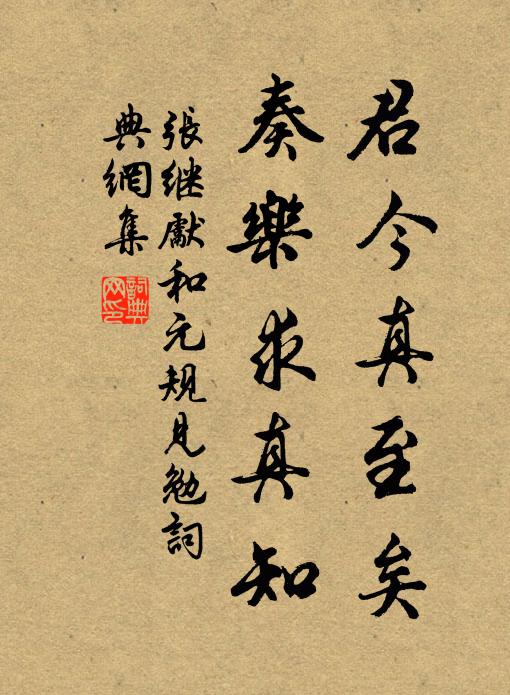 君今真至矣
奏樂求真知
張继獻和元規見勉詞
典網集
詞典網印